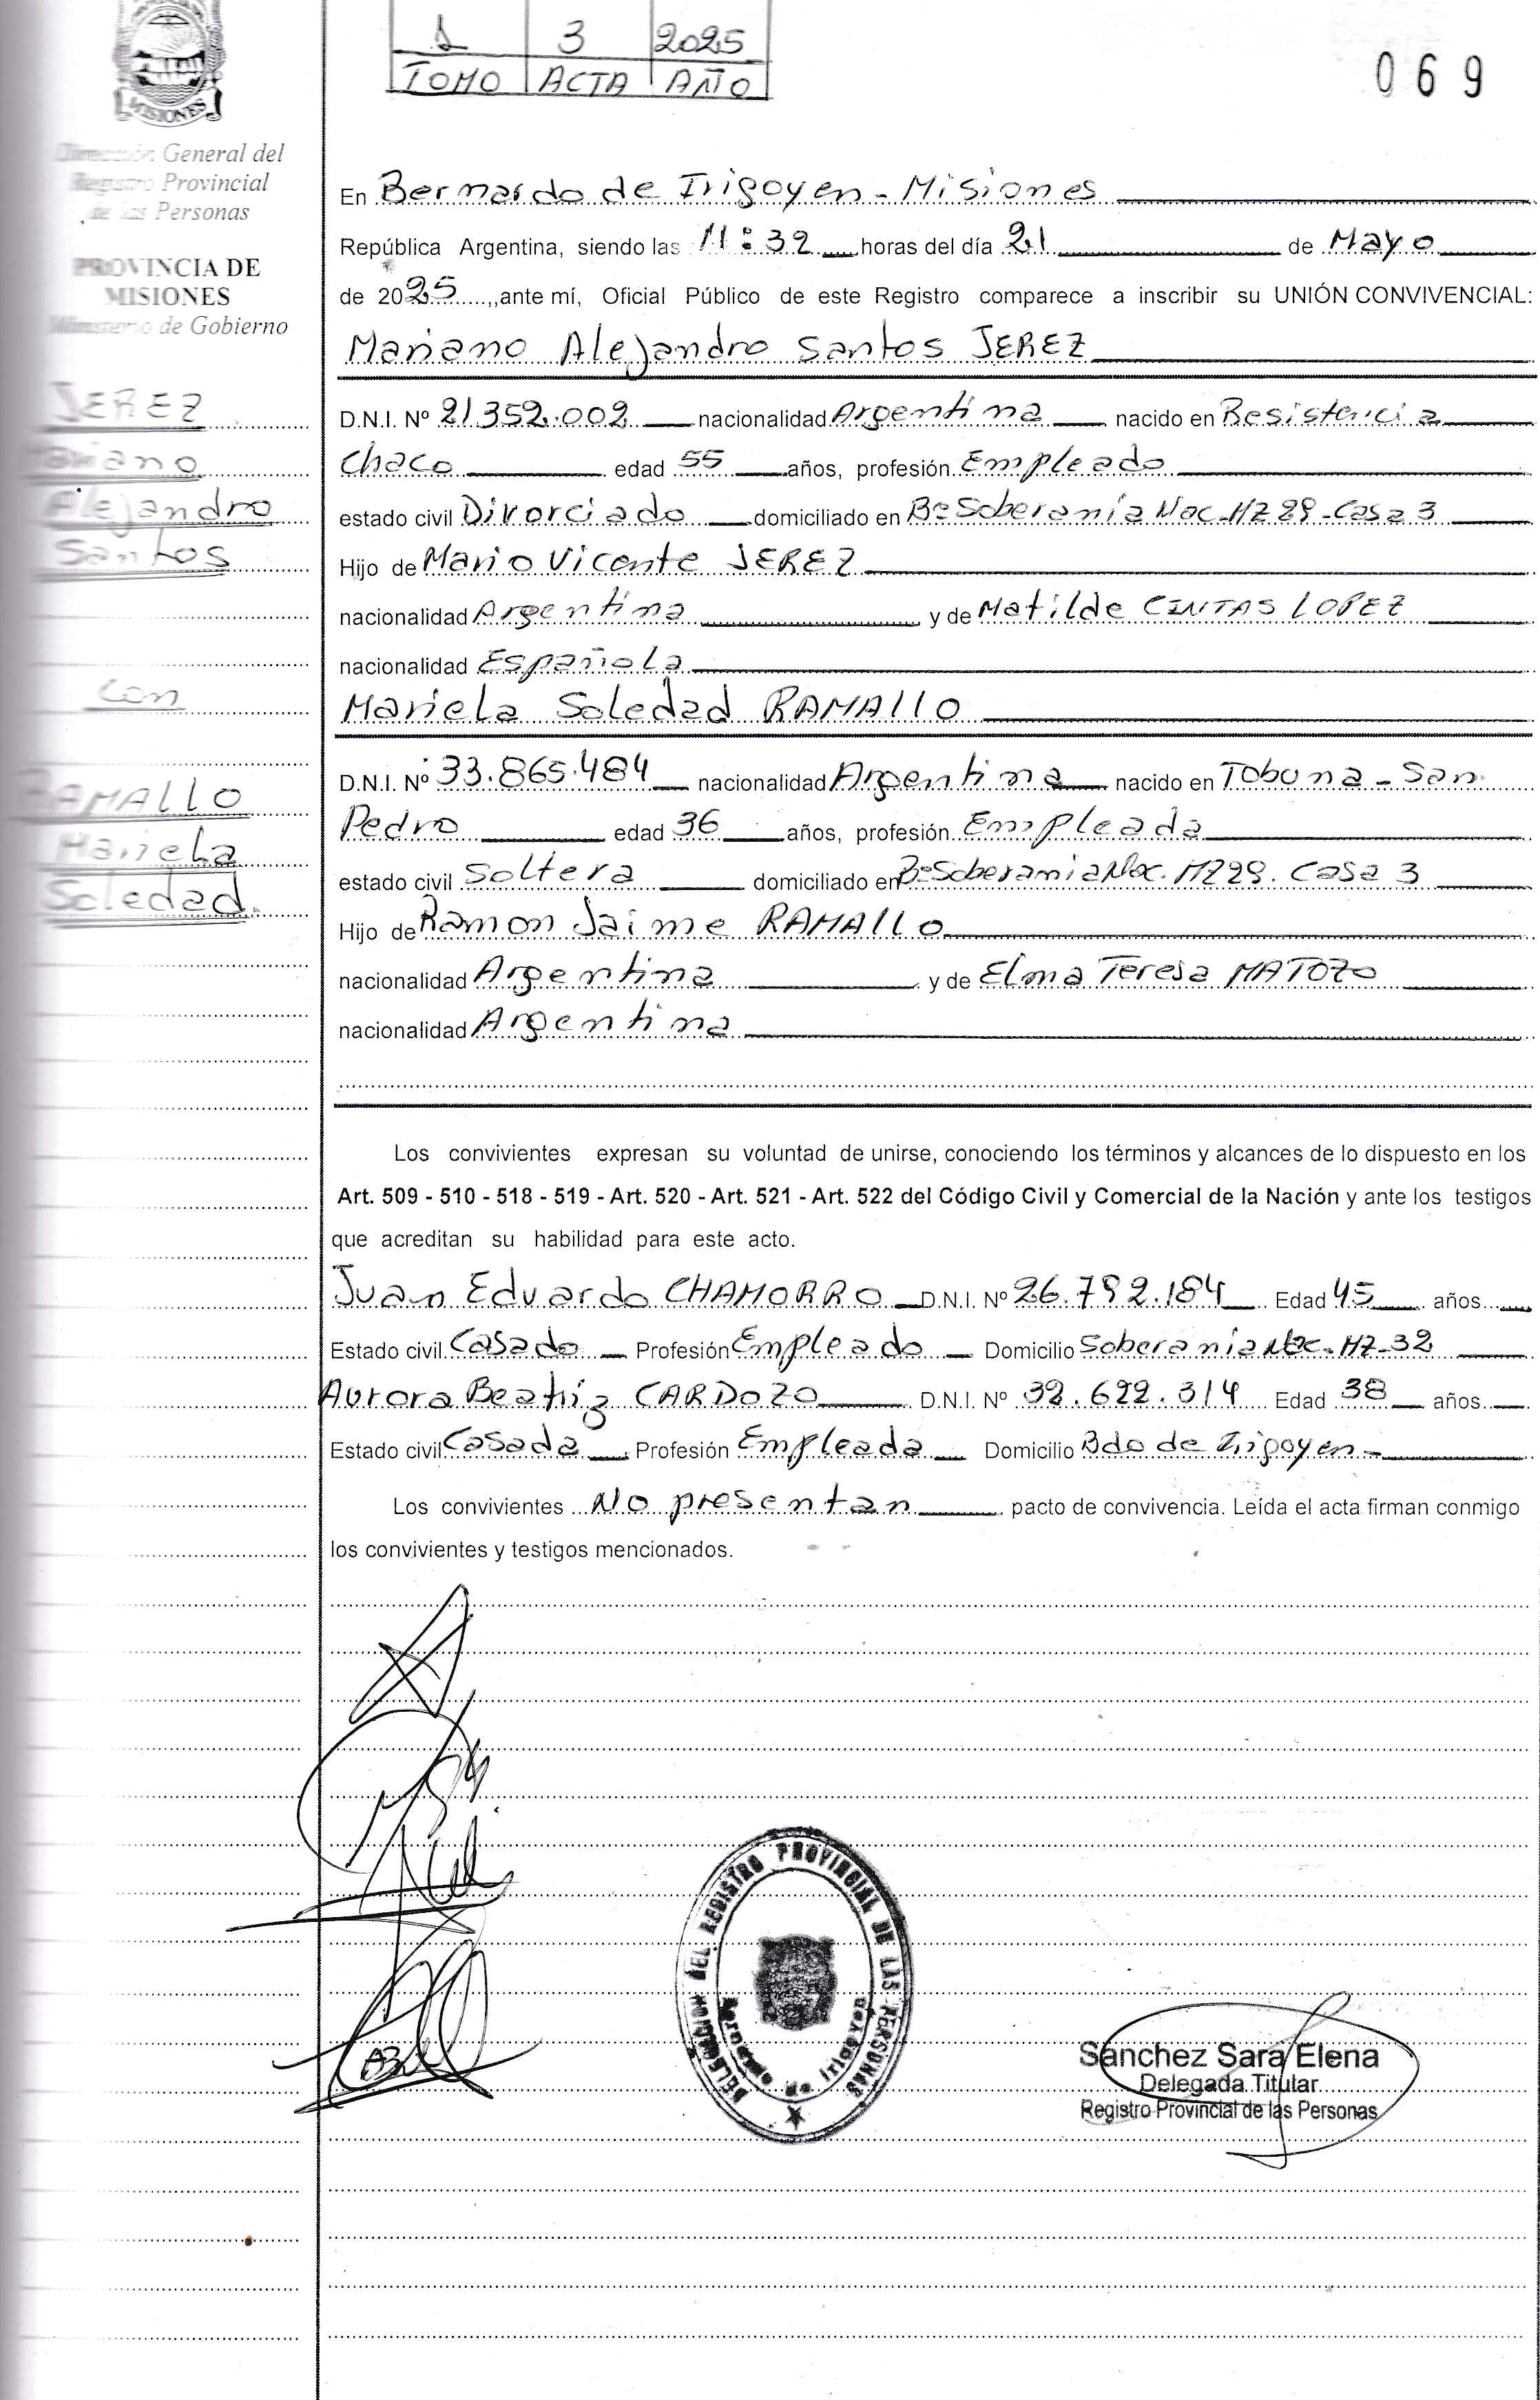 1 3 2025
TOMO ACTA AÑO
069
MISIONES
Dirección General del
Registro Provincial
de las Personas
PROVINCIA DE
MISIONES
Ministerio de Gobierno
JEREZ
Mariano
Alejandro
Santos
con
RAMALLO
Mariela
Soledad.
En Bernardo de Irigoyen - Misiones
República Argentina, siendo las 11:32 horas del día 21 de Mayo
de 2025, ante mí, Oficial Público de este Registro comparece a inscribir su UNIÓN CONVIVENCIAL:
Mariano Alejandro Santos JEREZ
D.N.I. Nº 21.352.002 nacionalidad Argentina nacido en Resistencia
Chaco edad 55 años, profesión Empleado
estado civil Divorciado domiciliado en Bº Soberanía Nac-MZ 29-Casa 3
Hijo de Mario Vicente JEREZ
nacionalidad Argentina y de Matilde CINTAS LOPEZ
nacionalidad Española
Mariela Soledad RAMALLO
D.N.I. Nº 33.865.484 nacionalidad Argentina nacido en Tobuna - San
Pedro edad 36 años, profesión Empleada
estado civil Soltera domiciliado en Bº Soberania Nac. MZ29. Casa 3
Hijo de Ramon Jaime RAMALLO
nacionalidad Argentina y de Elma Teresa MATOZO
nacionalidad Argentina
Los convivientes expresan su voluntad de unirse, conociendo los términos y alcances de lo dispuesto en los
Art. 509 - 510 - 518 - 519 - Art. 520 - Art. 521 - Art. 522 del Código Civil y Comercial de la Nación y ante los testigos
que acreditan su habilidad para este acto.
Juan Eduardo CHAMORRO D.N.I. Nº 26.792.184 Edad 45 años
Estado civil Casado Profesión Empleado Domicilio Soberania Nac-MZ-32
Aurora Beatriz CARDOZO D.N.I. Nº 32.622.314 Edad 38 años
Estado civil Casada Profesión Empleada Domicilio Bdo de Irigoyen-
Los convivientes No presentan pacto de convivencia. Leída el acta firman conmigo
los convivientes y testigos mencionados.
DELEGACION DEL REGISTRO PROVINCIAL DE LAS PERSONAS
Bernardo de Irigoyen
Sánchez Sara Elena
Delegada Titular
Registro Provincial de las Personas